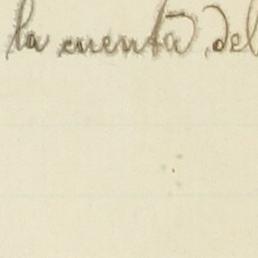 la cuenta del